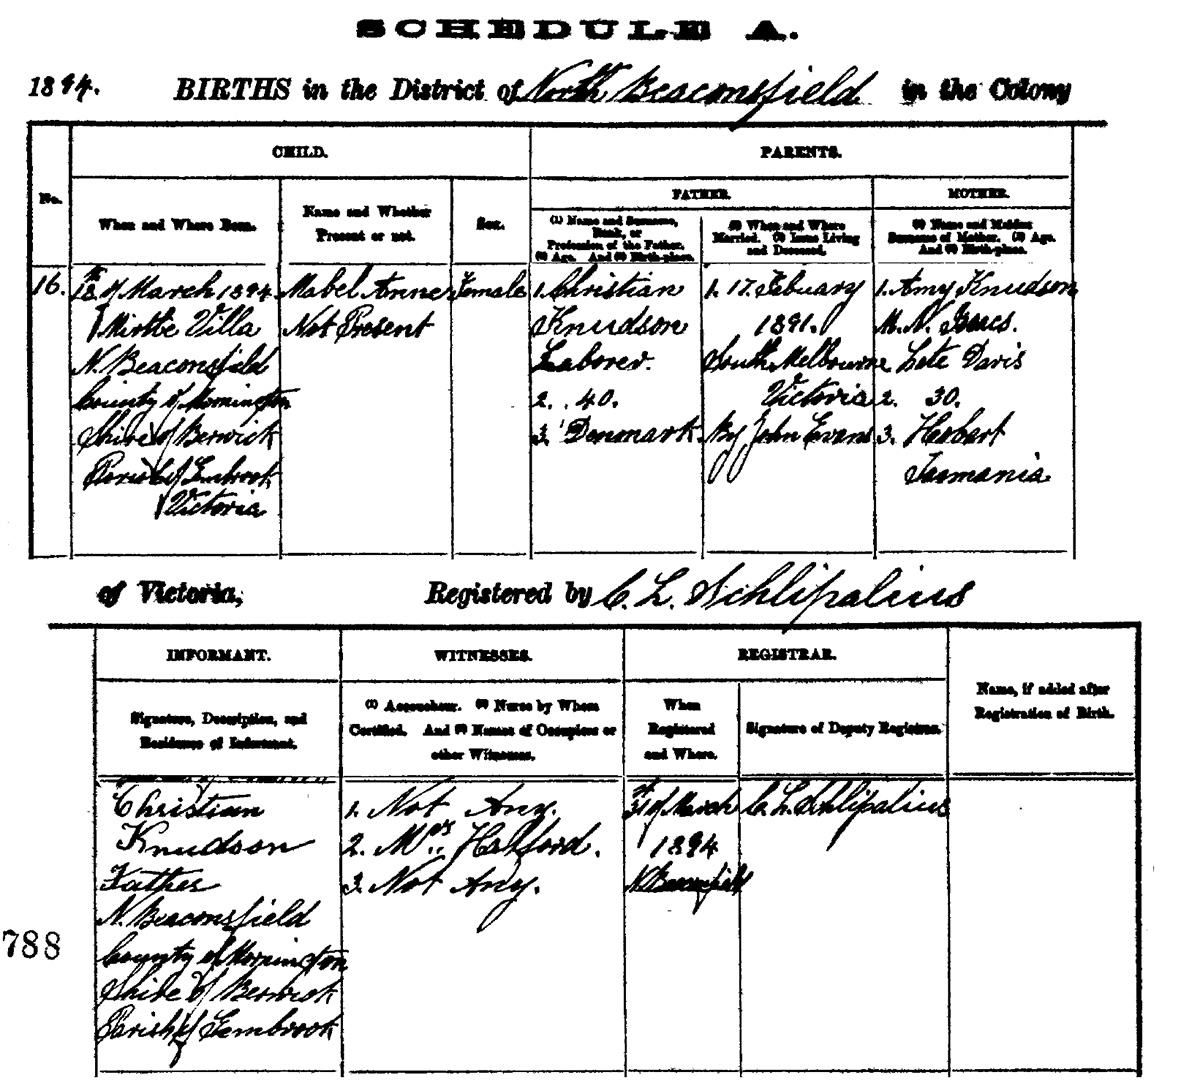 SCHEDULE A.
1894. BIRTHS in the District of North Beaconsfield in the Colony
CHILD.
PARENTS.
No.
When and Where Born.
Name and Whether
Present or not.
Sex.
FATHER.
(1) Name and Surname,
Rank, or
Profession of the Father.
(2) Age. And (3) Birth-place.
(1) When and Where
Married. (2) Issue Living
and Deceased.
MOTHER.
(1) Name and Maiden
Surname of Mother. (2) Age.
And (3) Birth-place.
16.
18th of March 1894
Mirtle Villa
N. Beaconsfield
County of Mornington
Shire of Berwick
Parish of Gembrook
Victoria
Mabel Anne
Not Present
Female
1. Christian
Knudson
Laborer.
2. 40.
3. Denmark.
1. 17. Febuary
1891.
South Melbourne
Victoria
By John Evans
1. Amy Knudson
M. N. Isaacs.
Late Davis
2. 30.
3. Hobart
Tasmania
of Victoria, Registered by C. L. Schlipalius
INFORMANT.
WITNESSES.
REGISTRAR.
Name, if added after
Registration of Birth.
Signature, Description, and
Residence of Informant.
(1) Accoucheur. (2) Nurse by Whom
Certified. And (3) Names of Occupiers or
other Witnesses.
When
Registered
and Where.
Signature of Deputy Registrar.
Christian
Knudson
Father
N. Beaconsfield
County of Mornington
Shire of Berwick
Parish of Gembrook
1. Not Any.
2. Mrs Halford.
3. Not Any.
31st of March
1894
N. Beaconsfield
C. L. Schlipalius
788